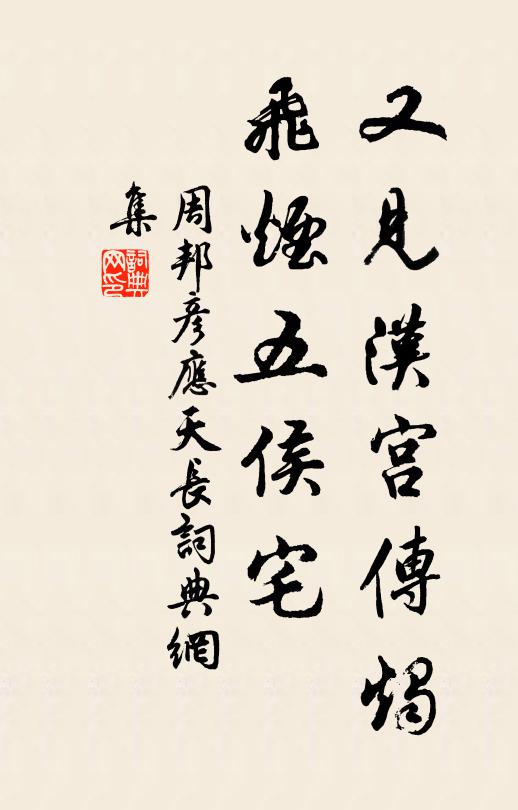 又見漢宮傳燭
飛煙五侯宅
周邦彥應天長詞典網
集
詞典网印